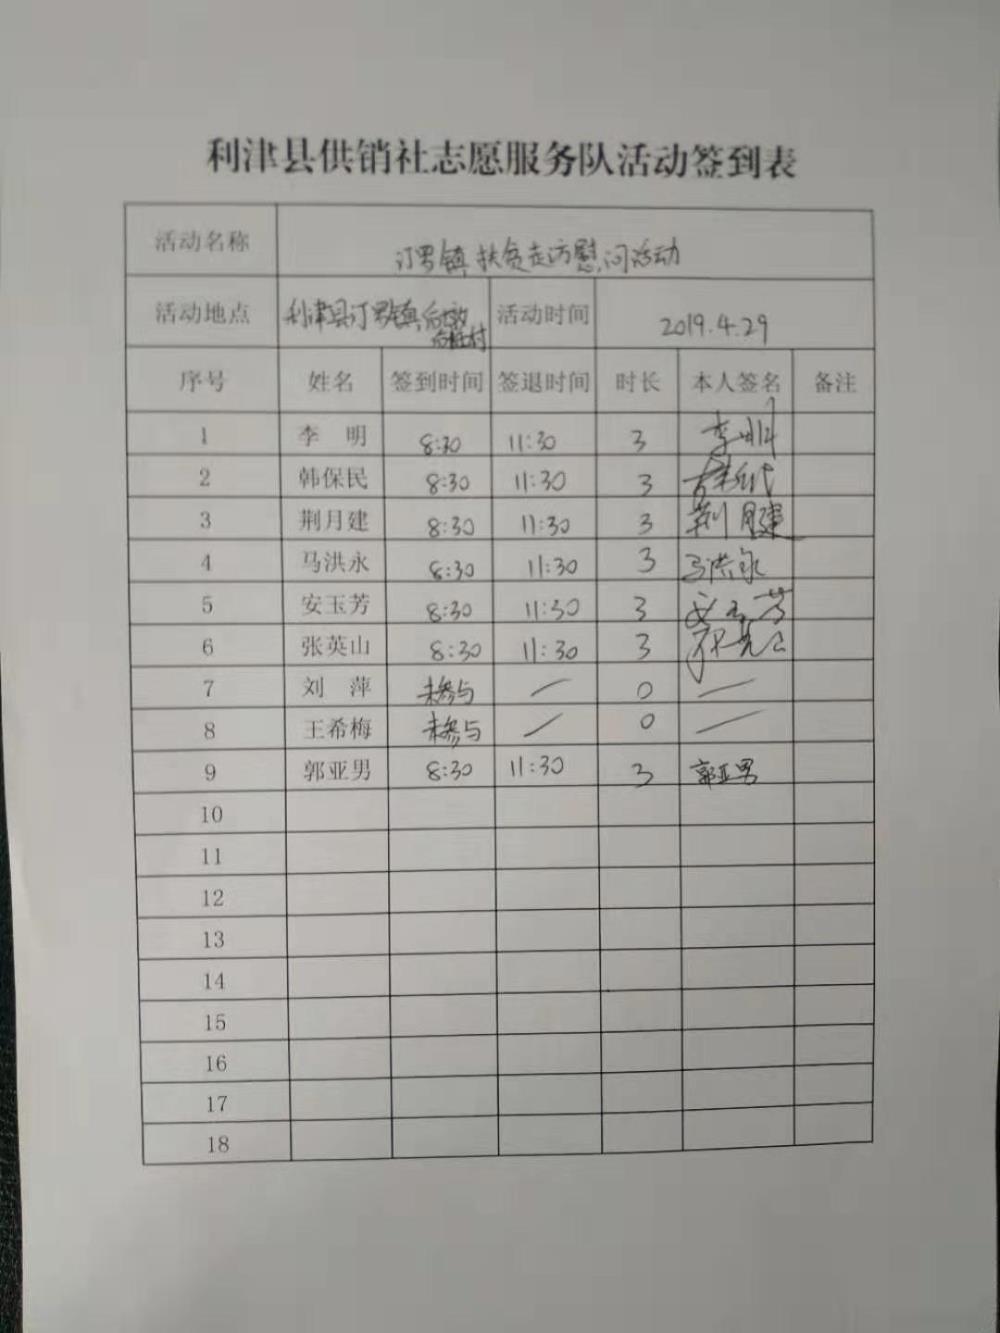 利津县供销社志愿服务队活动签到表
活动名称 汀罗镇扶贫走访慰问活动
活动地点 利津县汀罗镇后 村 活动时间 2019.4.29
序号 姓名 签到时间 签退时间 时长 本人签名 备注
1 李 明 8:30 11:30 3 李明
2 韩保民 8:30 11:30 3
3 荆月建 8:30 11:30 3 荆月建
4 马洪永 8:30 11:30 3 马洪永
5 安玉芳 8:30 11:30 3 安玉芳
6 张英山 8:30 11:30 3
7 刘 萍 未参与 / 0 /
8 王希梅 未参与 / 0 /
9 郭亚男 8:30 11:30 3 郭亚男
10
11
12
13
14
15
16
17
18